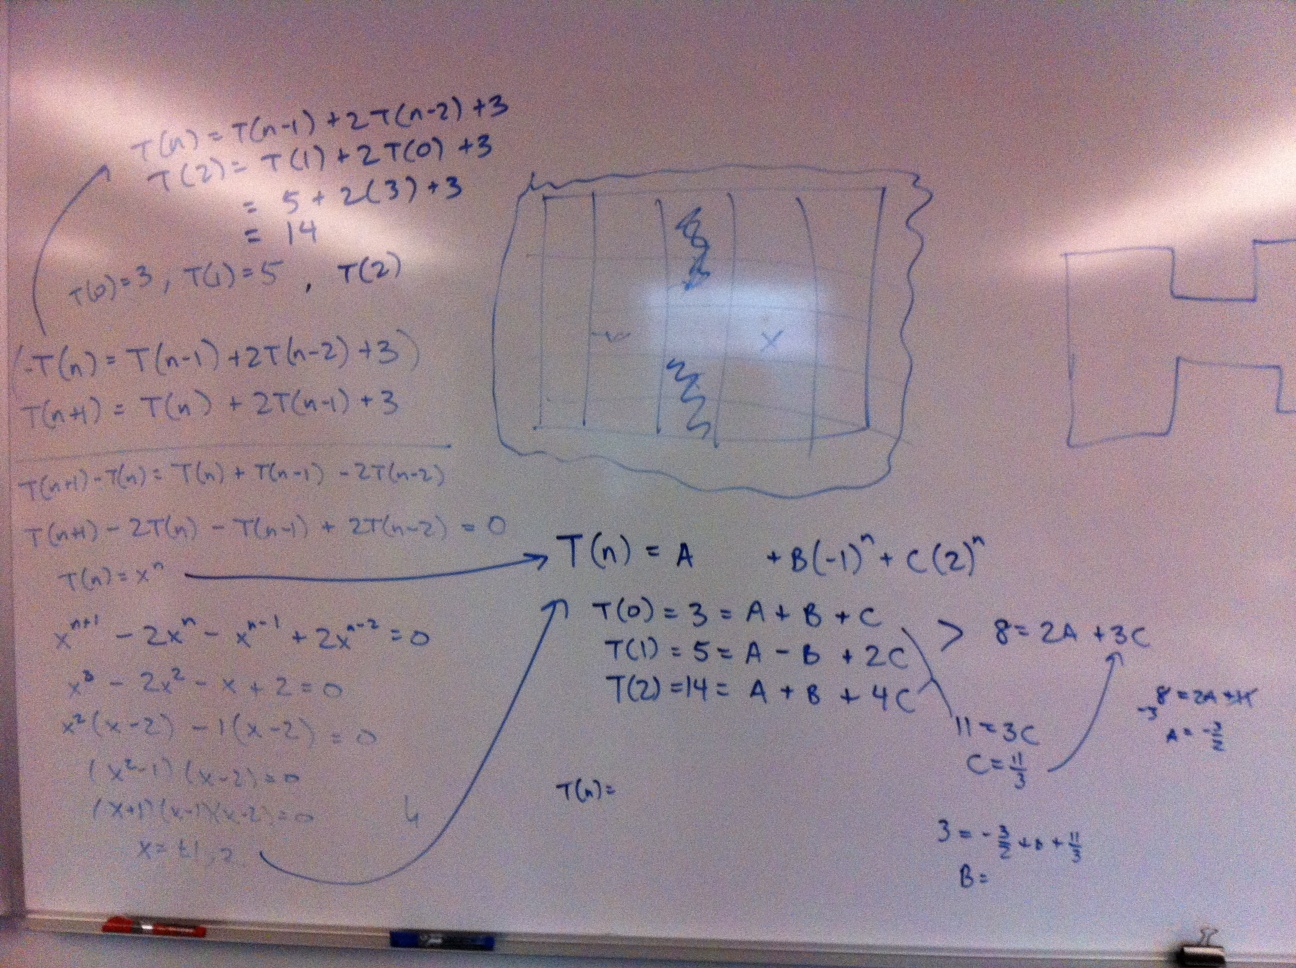 T(n) = T(n-1) + 2T(n-2) + 3
T(2) = T(1) + 2T(0) + 3
= 5 + 2(3) + 3
= 14
T(0) = 3, T(1) = 5, T(2)
(-T(n) = T(n-1) + 2T(n-2) + 3)
T(n+1) = T(n) + 2T(n-1) + 3
T(n+1) - T(n) = T(n) + T(n-1) - 2T(n-2)
T(n+1) - 2T(n) - T(n-1) + 2T(n-2) = 0
T(n) = xⁿ
xⁿ⁺¹ - 2xⁿ - xⁿ⁻¹ + 2xⁿ⁻² = 0
x³ - 2x² - x + 2 = 0
x²(x-2) - 1(x-2) = 0
(x²-1)(x-2) = 0
(x+1)(x-1)(x-2) = 0
x = ±1, 2
x
T(n) = A + B(-1)ⁿ + C(2)ⁿ
T(0) = 3 = A + B + C
T(1) = 5 = A - B + 2C
T(2) = 14 = A + B + 4C
> 8 = 2A + 3C
11 = 3C
C = 11/3
8 = 2A + 11
-3
A = -3/2
T(n) =
3 = -3/2 + B + 11/3
B =